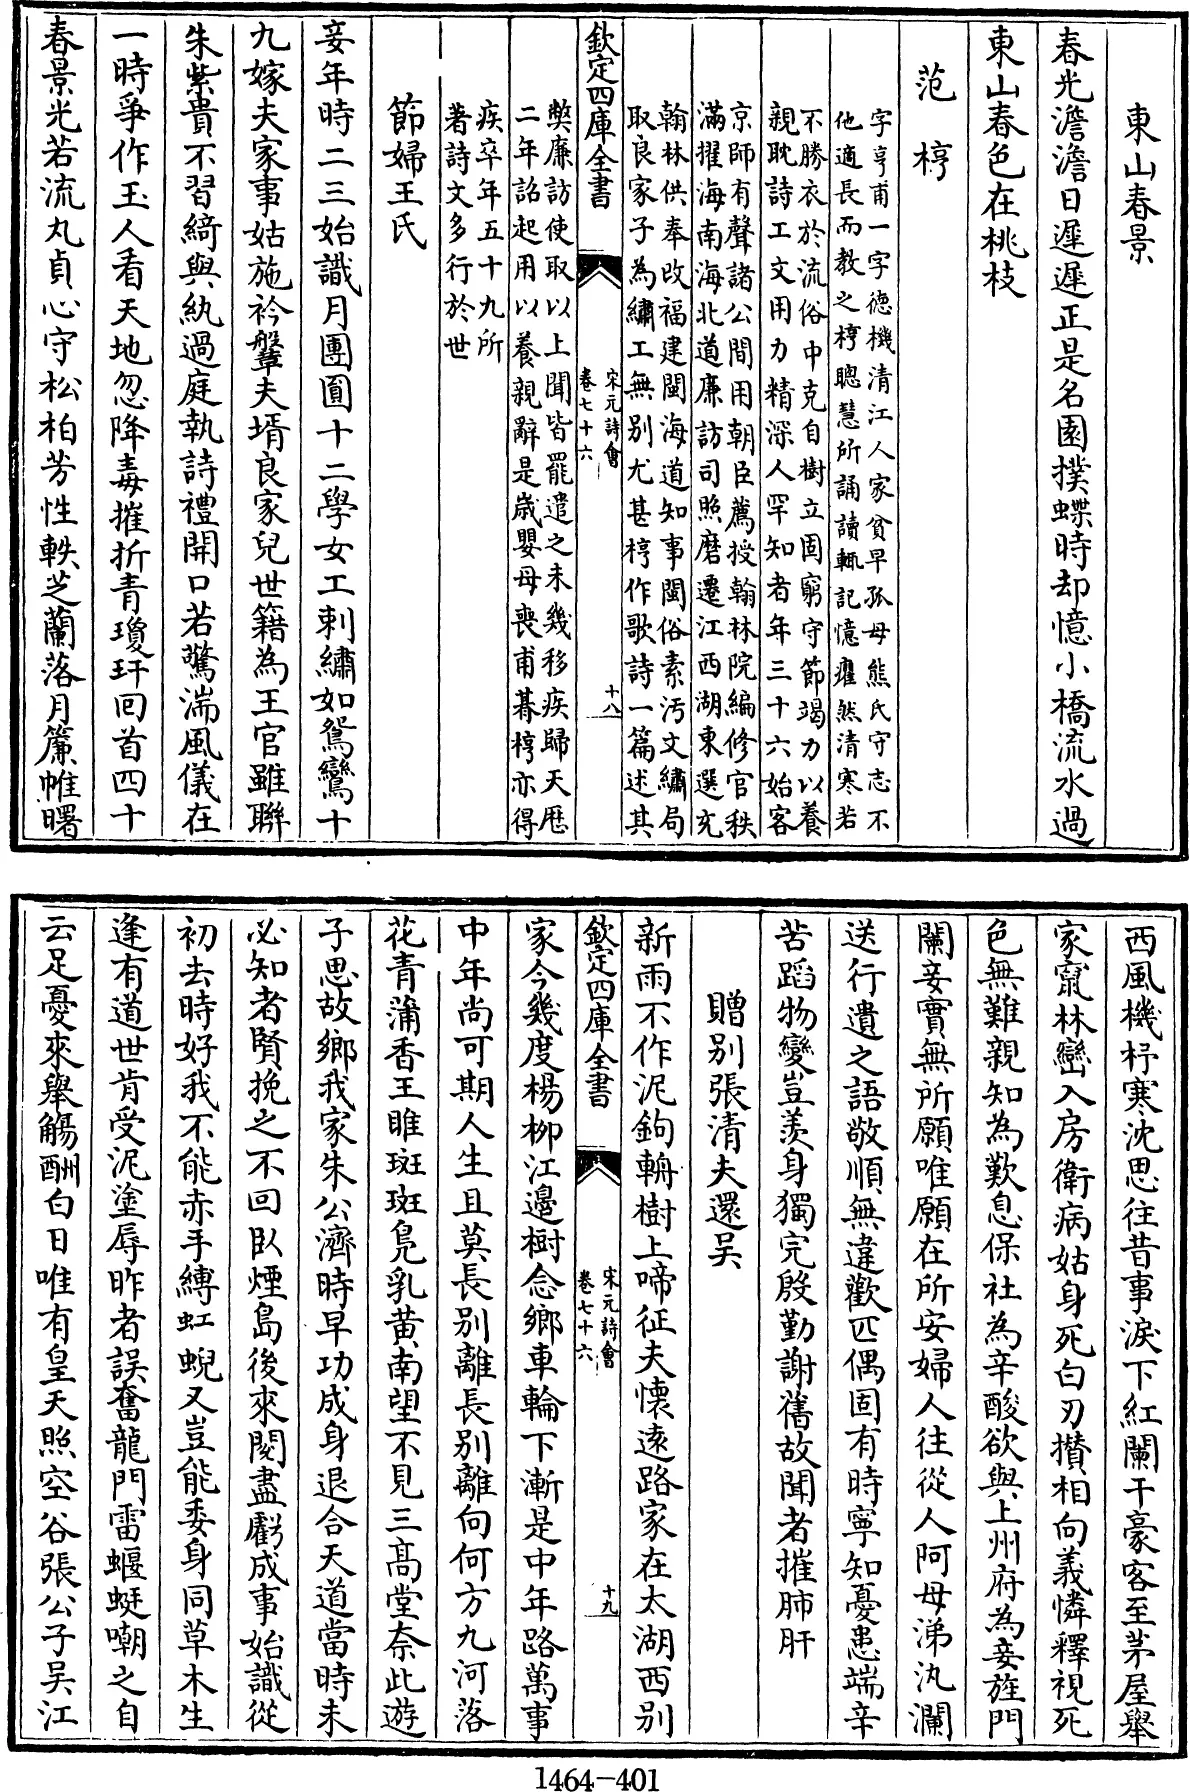 東山春景
春光澹澹日遲遲正是名園撲蝶時却憶小橋流水過
東山春色在桃枝
范梈
字亨甫一字德機清江人家貧早孤母熊氏守志不
他適長而教之梈聰慧所誦讀輒記憶癯然清寒若
不勝衣於流俗中克自樹立固窮守節竭力以養
親耽詩工文用力精深人罕知者年三十六始客
京師有聲諸公間用朝臣薦授翰林院編修官秩
滿擢海南海北道廉訪司照磨遷江西湖東選充
翰林供奉改福建閩海道知事閩俗素汚文繡局
取良家子為繡工無別尤甚梈作歌詩一篇述其
欽定四庫全書
宋元詩會
卷七十六
十八
弊廉訪使取以上聞皆罷遣之未幾移疾歸天厯
二年詔起用以養親辭是歲嬰母喪甫朞梈亦得
疾卒年五十九所
著詩文多行於世
節婦王氏
妾年時二三始識月團圓十二學女工刺繡如鴛鸞十
九嫁夫家事姑施衿鞶夫壻良家兒世籍為王官雖聯
朱紫貴不習綺與紈過庭執詩禮開口若驚湍風儀在
一時爭作玉人看天地忽降毒摧折青瓊玕囘首四十
春景光若流丸貞心守松柏芳性軼芝蘭落月簾帷曙
西風機杼寒沈思往昔事淚下紅闌干豪客至茅屋舉
家竄林巒入房衛病姑身死白刃攢相向義憐釋視死
色無難親知為歎息保社為辛酸欲與上州府為妾旌門
闌妾實無所願唯願在所安婦人往從人阿母涕汍瀾
送行遺之語敬順無違歡匹偶固有時寧知憂患端辛
苦蹈物變豈羨身獨完殷勤謝舊故聞者摧肺肝
贈別張清夫還吴
新雨不作泥鉤輈樹上啼征夫懷逺路家在太湖西别
欽定四庫全書
宋元詩會
卷七十六
十九
家今幾度楊柳江邊樹念鄉車輪下漸是中年路萬事
中年尚可期人生且莫長别離長别離向何方九河落
花青蒲香王雎斑斑凫乳黄南望不見三髙堂奈此遊
子思故鄉我家朱公濟時早功成身退合天道當時未
必知者賢挽之不回臥煙島後來閱盡虧成事始識從
初去時好我不能赤手縛虹蜺又豈能委身同草木生
逢有道世肯受泥塗辱昨者誤奮龍門雷蝘蜓嘲之自
云足憂來舉觴酬白日唯有皇天照空谷張公子吴江
1464-401